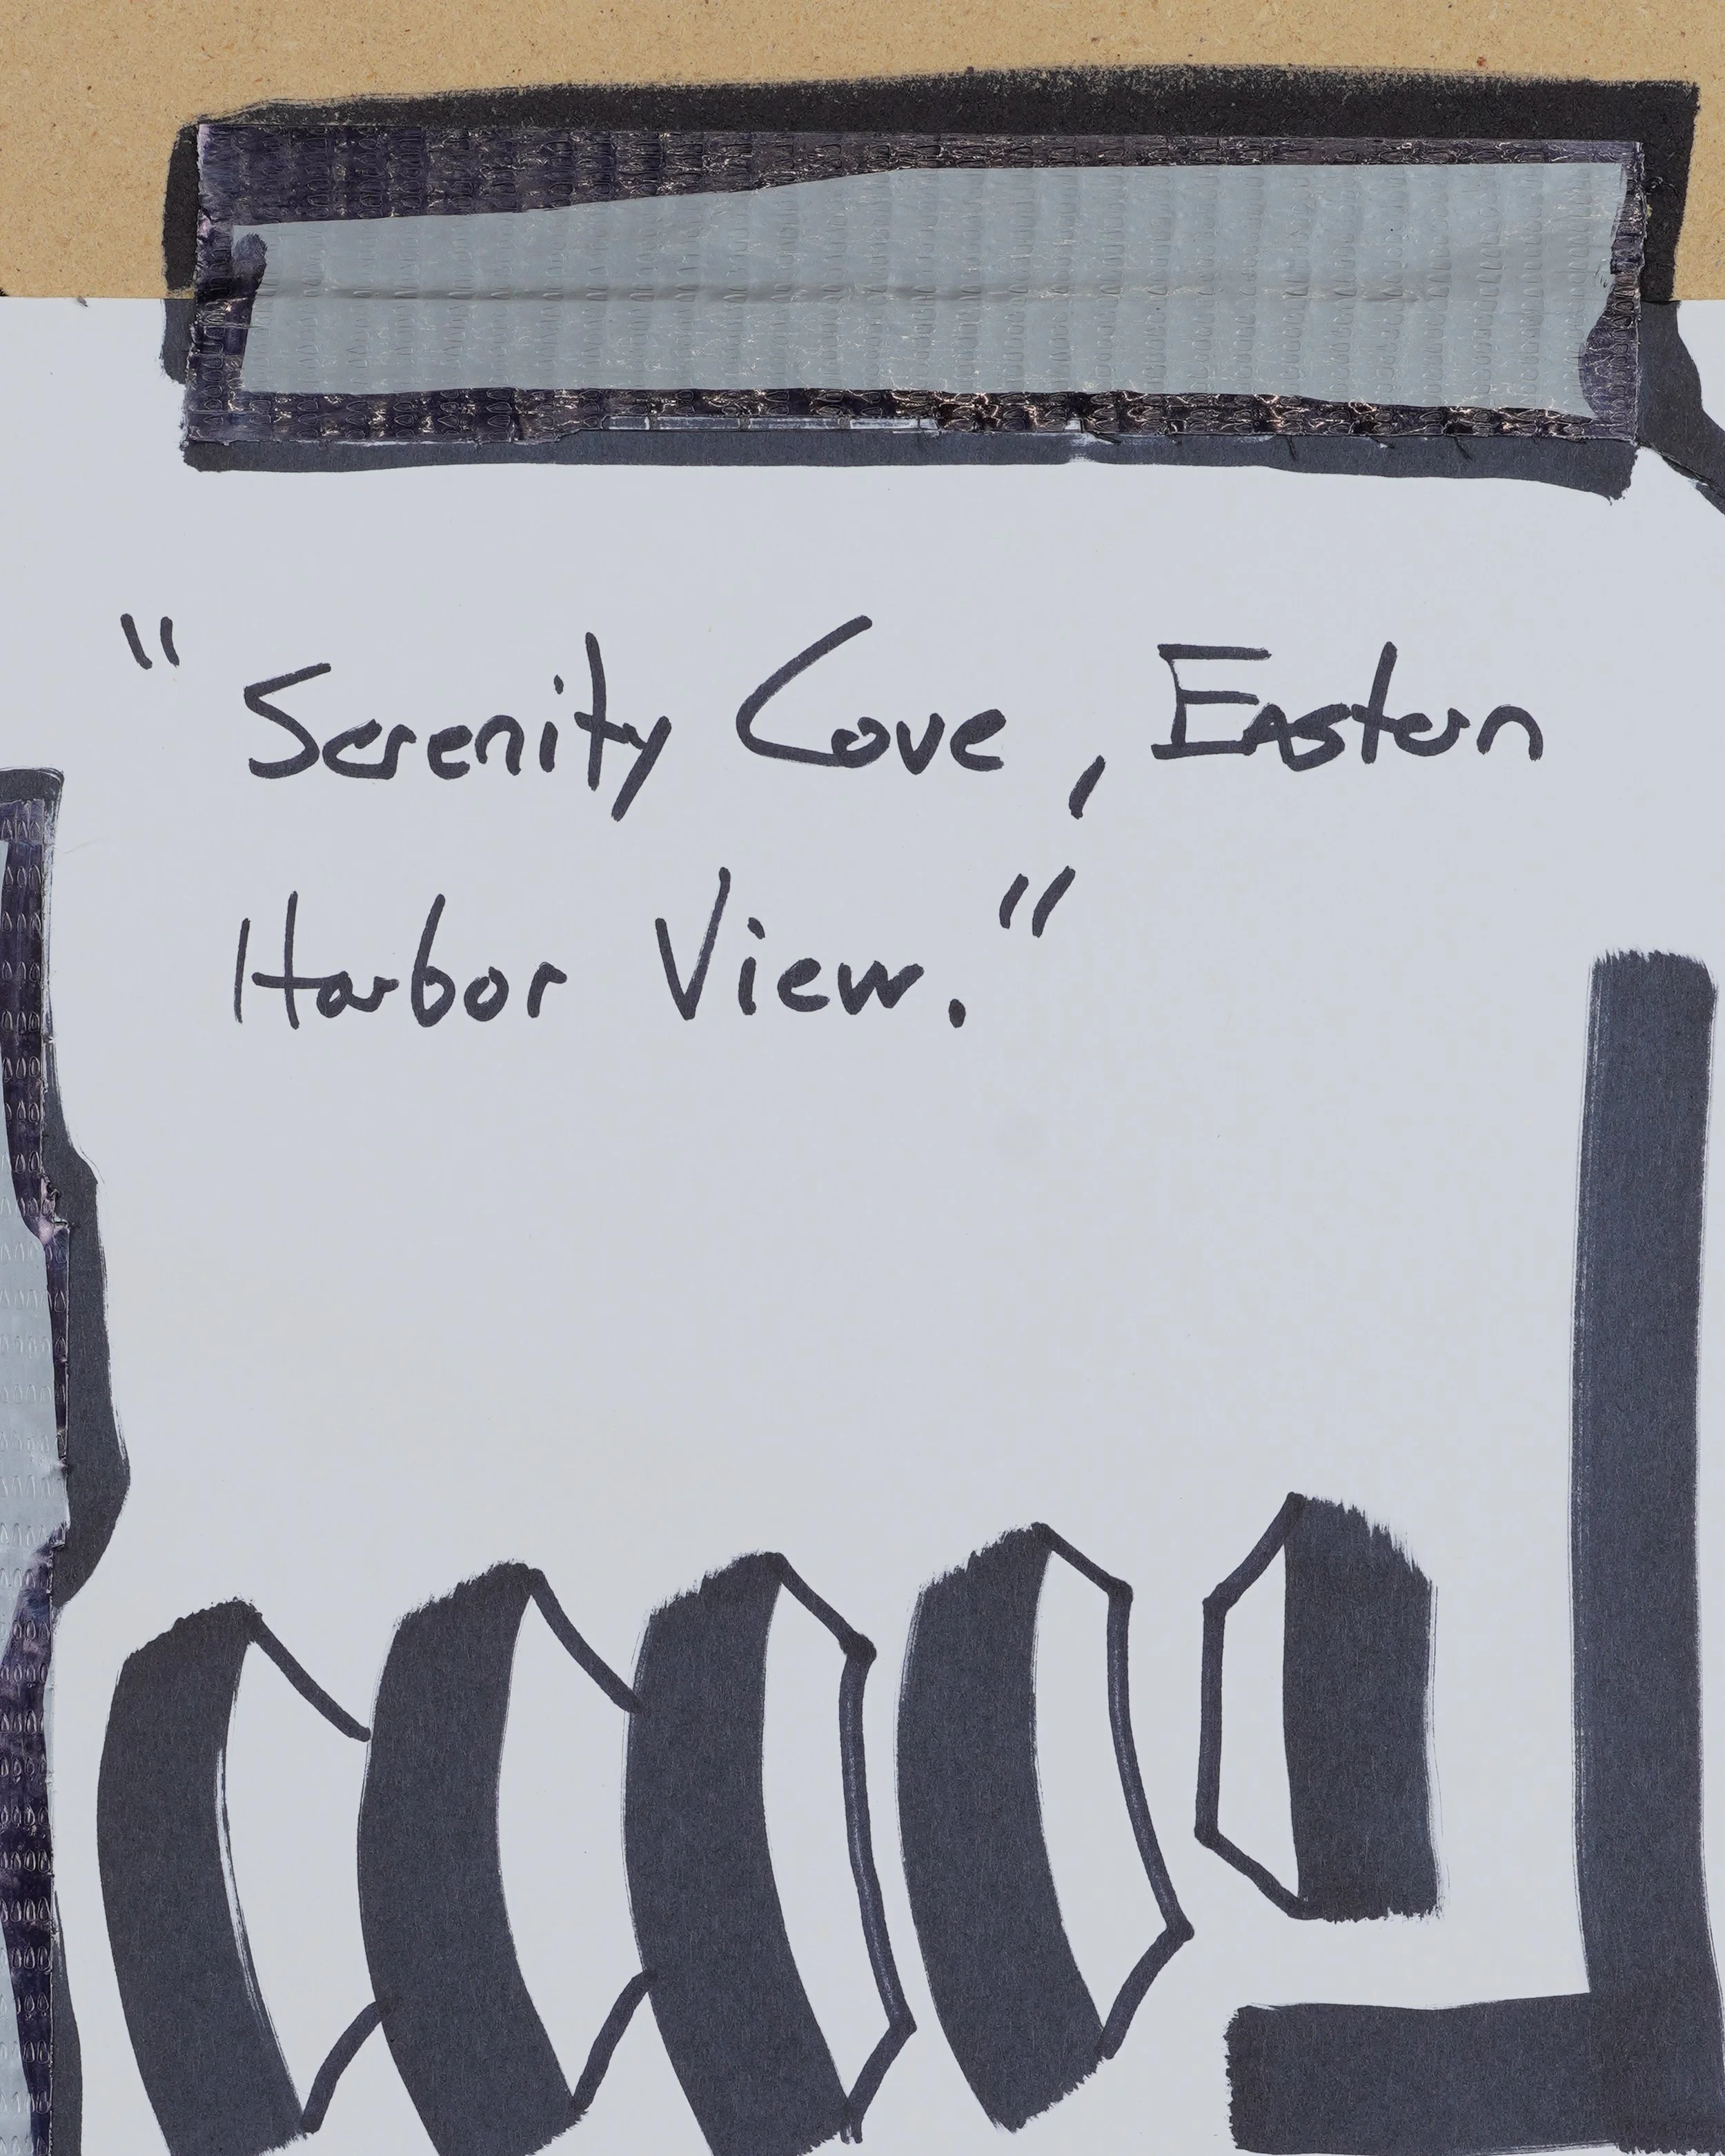 "Serenity Cove, Eastern
Harbor View."